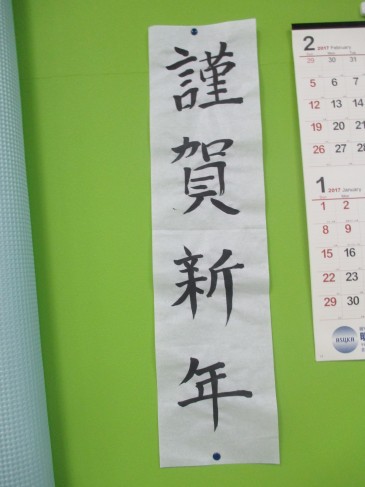 謹賀新年
2 2017 February
29 30 31
5 6 7
12 13 14
19 20 21
26 27 28
1 2017 January
1 2
8 9
15 16
22 23
29 30